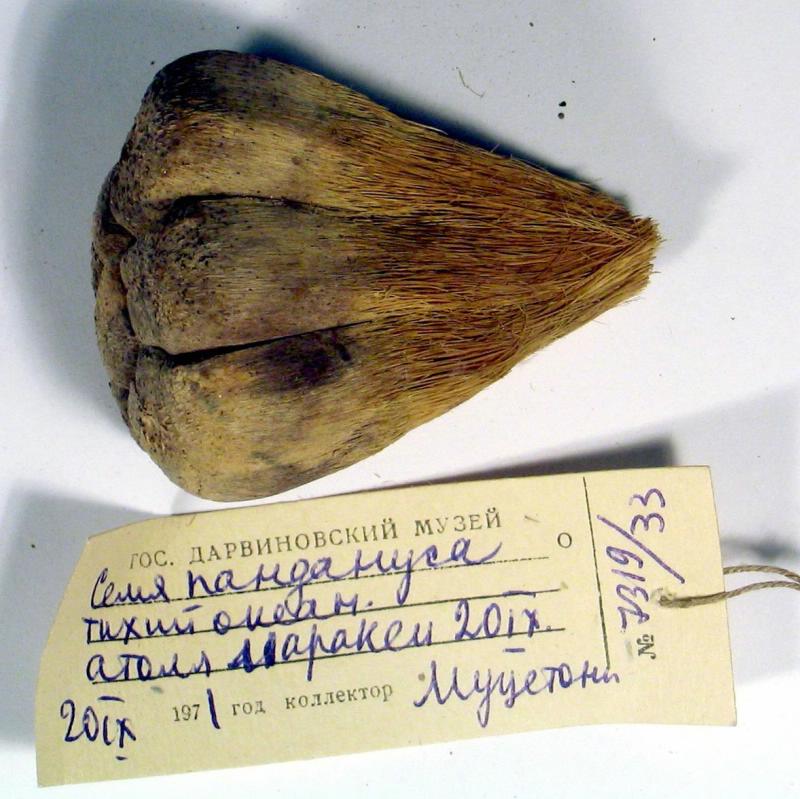 ГОС. ДАРВИНОВСКИЙ МУЗЕЙ О
Семя пандануса
тихий океан.
атолл Маракеи 20IX.
20IX 1971 год коллектор Муцетони
№ 7319/33